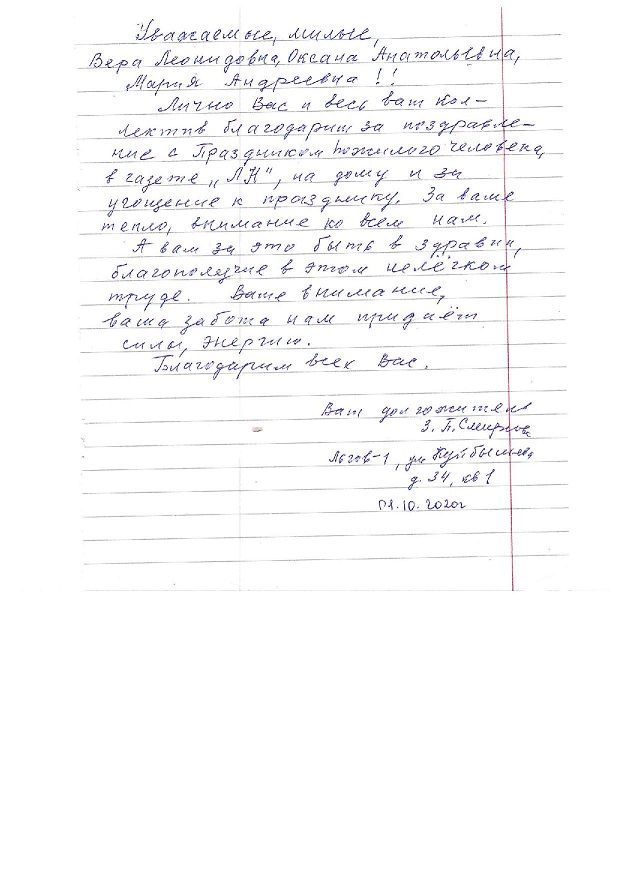 Уважаемые, милые,
Вера Леонидовна, Оксана Анатольевна,
Мария Андреевна!!
Лично Вас и весь ваш кол-
лектив благодарит за поздравле-
ние с Праздником пожилого человека,
в газете „ЛН", на дому и за
угощение к празднику. За ваше
тепло, внимание ко всем нам.
А вам за это быть в здравии,
благополучие в этом нелёгком
труде. Ваше внимание,
ваша забота нам придаёт
силы, энергию.
Благодарим всех Вас.
Ваш долгожитель
З. П. Смирнова
Льгов-1, ул Куйбышева
д. 34, кв 1
01.10.2020г